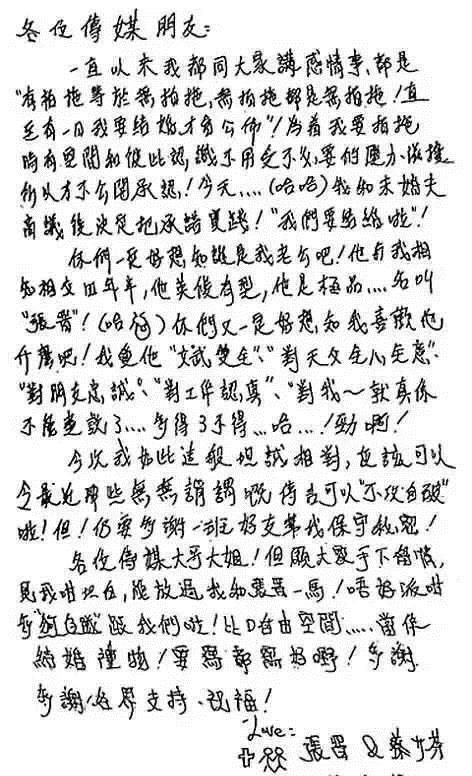 各位傳媒朋友：
一直以來我都同大家講感情事，都是
"有拍拖等於無拍拖，無拍拖都是無拍拖！直
至有一日我要結婚才會公佈"！為着我要拍拖
時有空間和彼此認識不用受不必要的壓力傷擾
所以才不公開承認！今天....(哈哈)我和未婚夫
商議後決定把承諾實踐！"我們要結婚啦"！
你們一定好想知誰是我老公吧！他與我相
知相交四年半，他英俊有型，他是極品....名叫
"張晋"！(哈哈)你們又一定好想知我喜歡他
什麼吧！我覺他"文武雙全"、"對天父全心全意"、
"對朋友忠誠"、"對工作認真"、"對我～就真係
不能盡數了....多得3不得...哈...！勁啊！
今次我如此這般坦誠相對，應該可以
令最近那些無無謂謂嘅傳言可以"不攻自破"
啦！但！仍要多謝一班好友幫我保守秘密！
各位傳媒大哥大姐！但願大家手下留情，
見我咁坦白，能放過我和張晋一馬！唔好派咁
多"狗仔隊"跟我們啦！比D自由空間.....當係
結婚禮物！要寫都寫好嘢！多謝
多謝各界支持、祝福！
Love：
張晋 & 蔡少芬